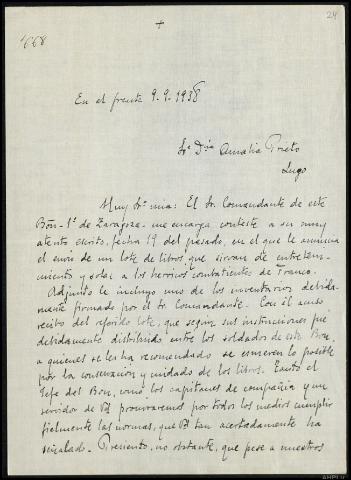 24
+
4668
En el frente 9.9.1938
Sra Dña Amalia Prieto
Lugo
Muy Sra mia: El Sr. Comandante de este
Bón - 1º de Zaragoza - me encarga conteste a su muy
atento escrito, fecha 19 del pasado, en el que le anuncia
el envio de un lote de libros, que sirvan de entreteni-
miento y solaz a los heroicos combatientes de Franco.
Adjunto le incluyo uno de los inventarios debida-
mente firmado por el Sr Comandante. Con él acuso
recibo del referido lote, que según sus instrucciones fué
debidamente distribuido entre los soldados de este Bon,
a quienes se les ha recomendado se esmeren lo posible
por la conservación y cuidado de los libros. Tanto el
Jefe del Bon, como los capitanes de compañía y un
servidor de Vd procuraremos por todos los medios cumplir
fielmente las normas, que Vd tan acertadamente ha
señalado. Presiento, no obstante, que pese a nuestros